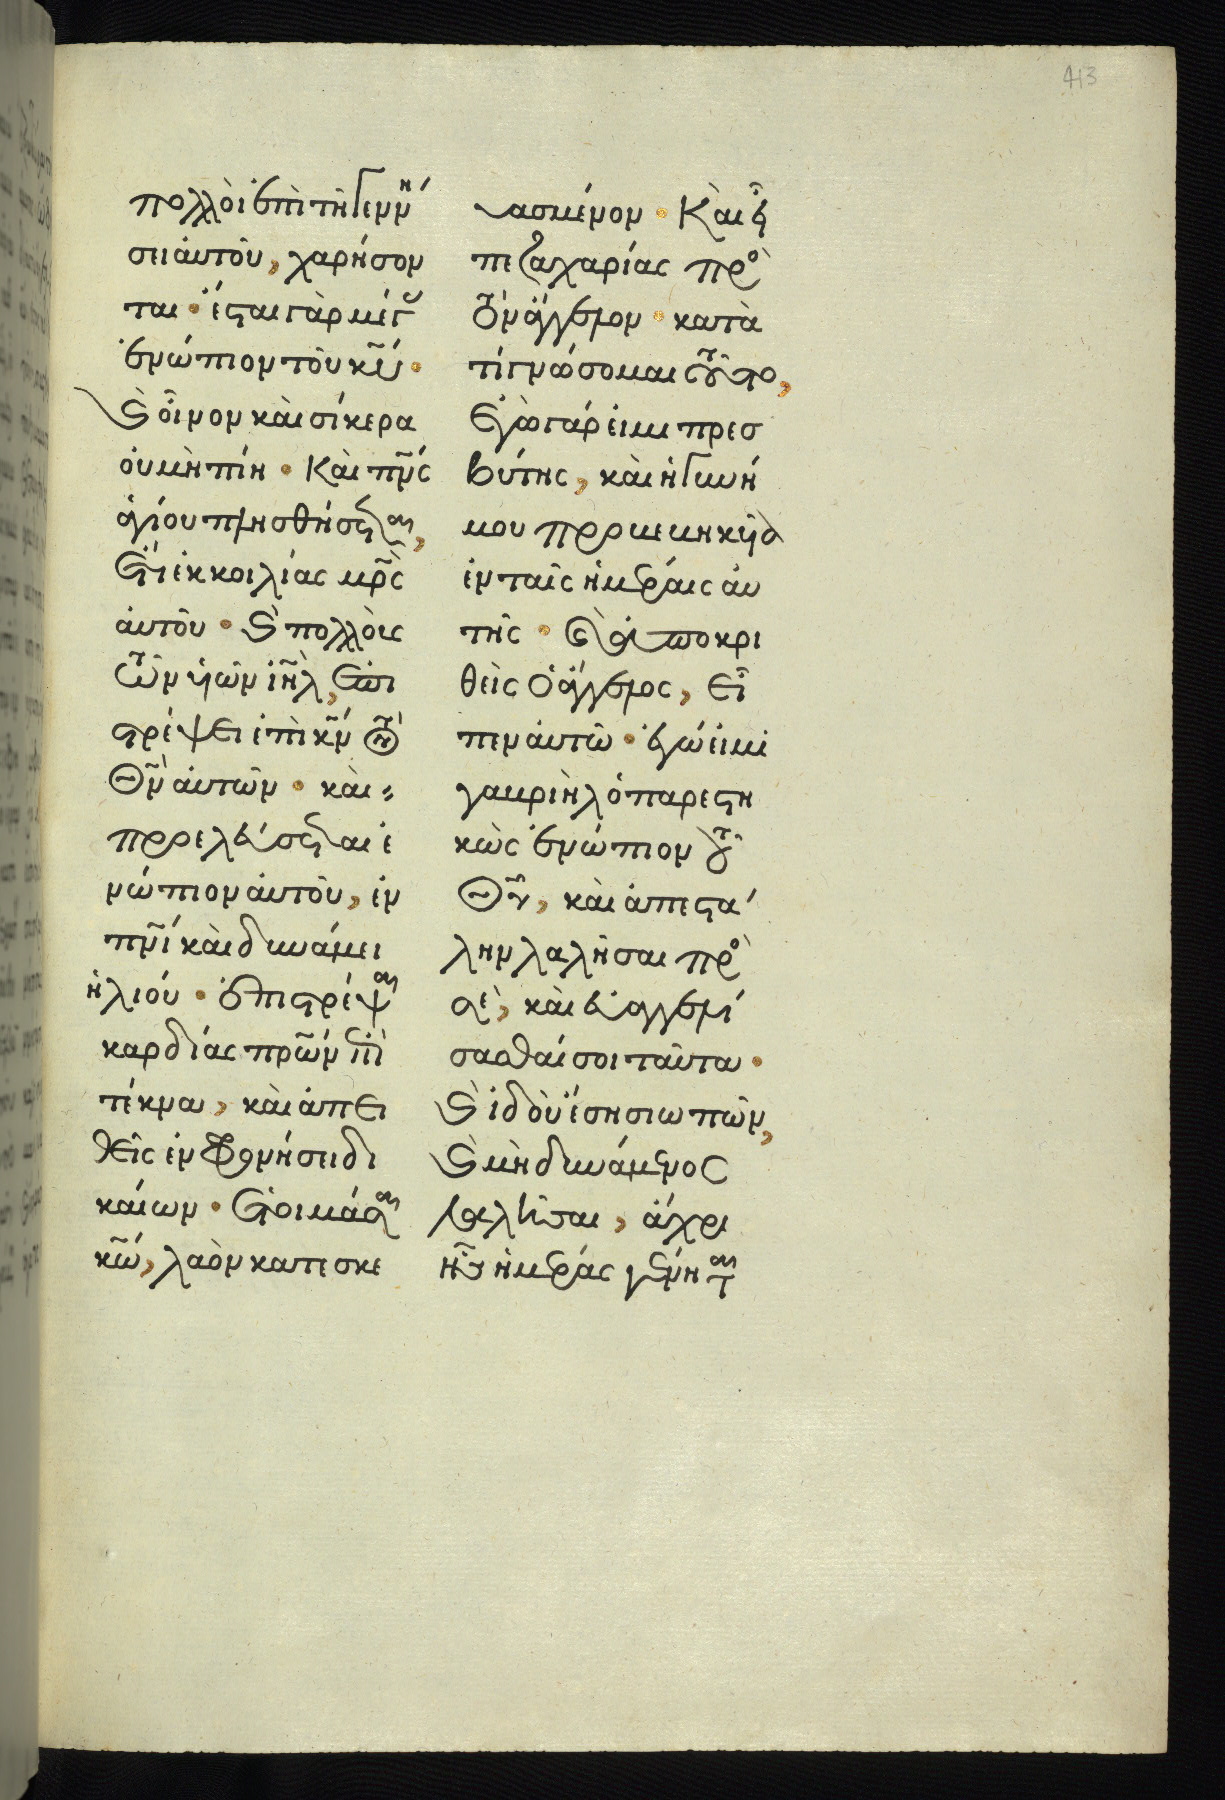 413
πολλὸι ἐπὶ τῆ γεννή
σει ἀυτοῦ, χαρήσον
ται · ἔσται γὰρ μέγας
ἐνώπιον τοῦ κῡ ·
Καὶ οἶνον κὰι σίκερα
ὀυ μὴ πίη · Κὰι πν̄ς
ἁγίου πλησθήσεται,
Ἔτι ἐκ κοιλίας μρ̄ς
ἀυτοῦ · Καὶ πολλὸυς
τῶν ὑιῶν ἰη̄λ, ἐπι
στρέψει ἐπὶ κ̄ν τὸν
Θ̄ν ἀυτῶν · κὰι
προελεύσεται ἐ
νώπιον ἀυτοῦ, ἐν
πν̄ι κὰι δυνάμει
ἡλιού · ἐπιστρέψαι
καρδίας πρ̄ων ἐπὶ
τέκνα, κὰι ἀπει
θεῖς ἐν φρονήσει δι
κάιων · Ἑτοιμάσαι
κ̄ω, λαὸν κατεσκε
υασμένον · Κὰι εἶ
πε ζαχαρίας πρὸς
τὸν ἄγγελον · κατὰ
τί γνώσομαι τοῦτο,
Ἐγὼ γάρ ἐιμι πρεσ
βύτης, κὰι ἡ γυνή
μου προβεβηκυῖα
ἐν ταῖς ἡμέραις ἀυ
τῆς · Καὶ ἀποκρι
θὲις ὁ ἄγγελος, εἶ
πεν ἀυτῶ · ἐγώ ἐιμι
γαβριὴλ ὁ παρεστη
κὼς ἐνώπιον τοῦ
Θ̄υ, κὰι ἀπεστά
λην λαλῆσαι πρὸς
σὲ, κὰι ἐυαγγελί
σασθαί σοι ταῦτα ·
Καὶ ἰδὸυ ἔση σιωπῶν,
Καὶ μὴ δυνάμενος
λαλῆσαι, ἄχρι
ἧς ἡμέρας γένηται